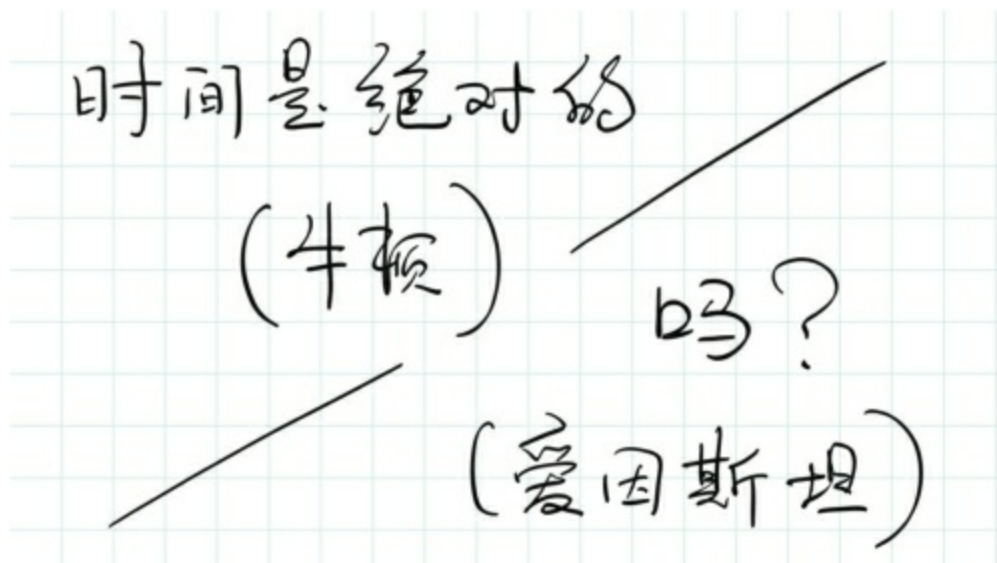 时间是绝对的
(牛顿)
吗?
(爱因斯坦)